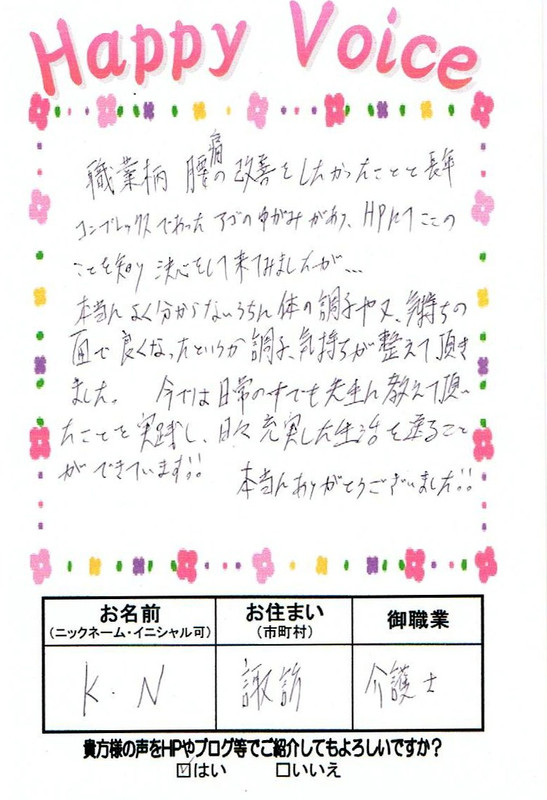 Happy Voice
職業柄 腰痛の改善をしたかったことと長年
コンプレックスであったアゴのゆがみがあり、HPにてここの
ことを知り決心をして来てみましたが…
本当によく分からないうちに体の調子や又、気持ちの
面で良くなったというか調子、気持ちが整えて頂き
ました。 今では日常の中でも先生に教えて頂い
たことを実践し、日々充実した生活を送ること
ができています!!
本当にありがとうございました!!
お名前 お住まい 御職業
(ニックネーム・イニシャル可) (市町村)
K.N 諏訪 介護士
貴方様の声をHPやブログ等でご紹介してもよろしいですか?
☑はい □いいえ